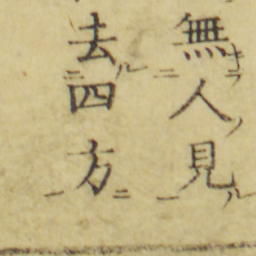 無人見
去四方